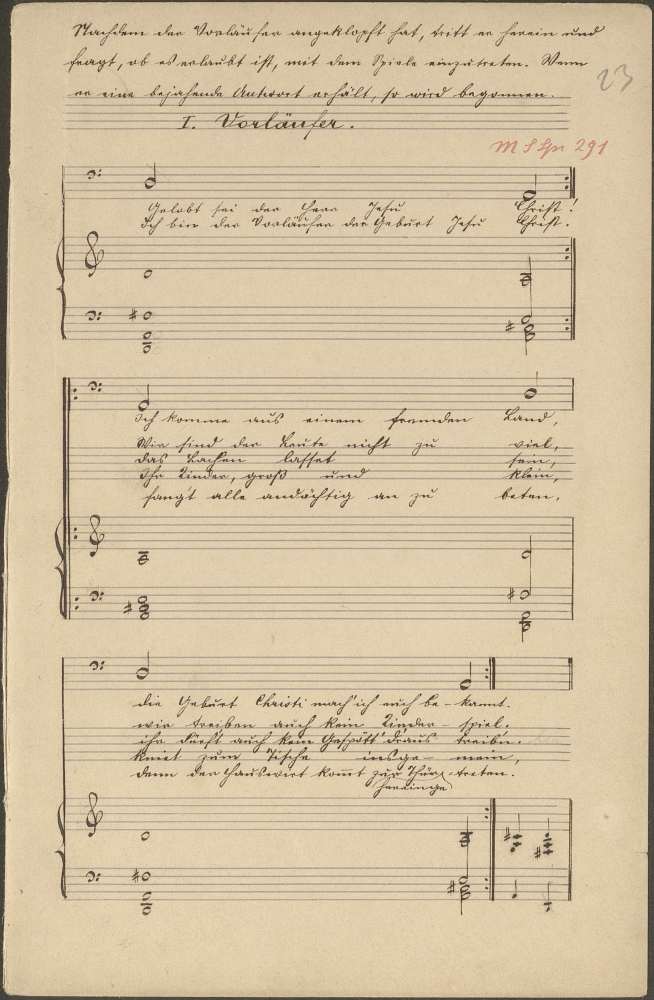 Nachdem der Vorläufer angeklopft hat, tritt er herein und
fragt, ob es erlaubt ist, mit dem Spiele einzutreten. Wenn
er eine bejahende Antwort erhält, so wird begonnen.
23
I. Vorläufer.
291
Gelobt sei der Herr Jesu Christ!
Ich bin der Vorläufer der Geburt Jesu Christ.
Ich komme aus einem fremden Land,
Wir sind der Leute nicht zu viel,
das Lachen lasset sein,
Ihr Kinder, groß und klein,
fangt alle andächtig an zu beten,
die Geburt Christi mach' ich euch be-kannt.
wir treiben auch kein Kinder-spiel.
ihr dürft auch kein Gespött draus treib'n.
kniet zum Tische insge-mein,
denn der Hauswirt kom̄t zur Thür-treten.
hereinge